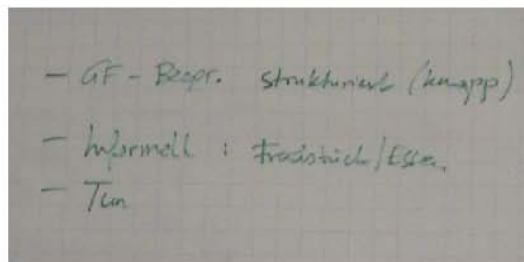 - GF - Bespr. strukturiert (knapp)
- Informell : Frühstück/Essen
- Tun